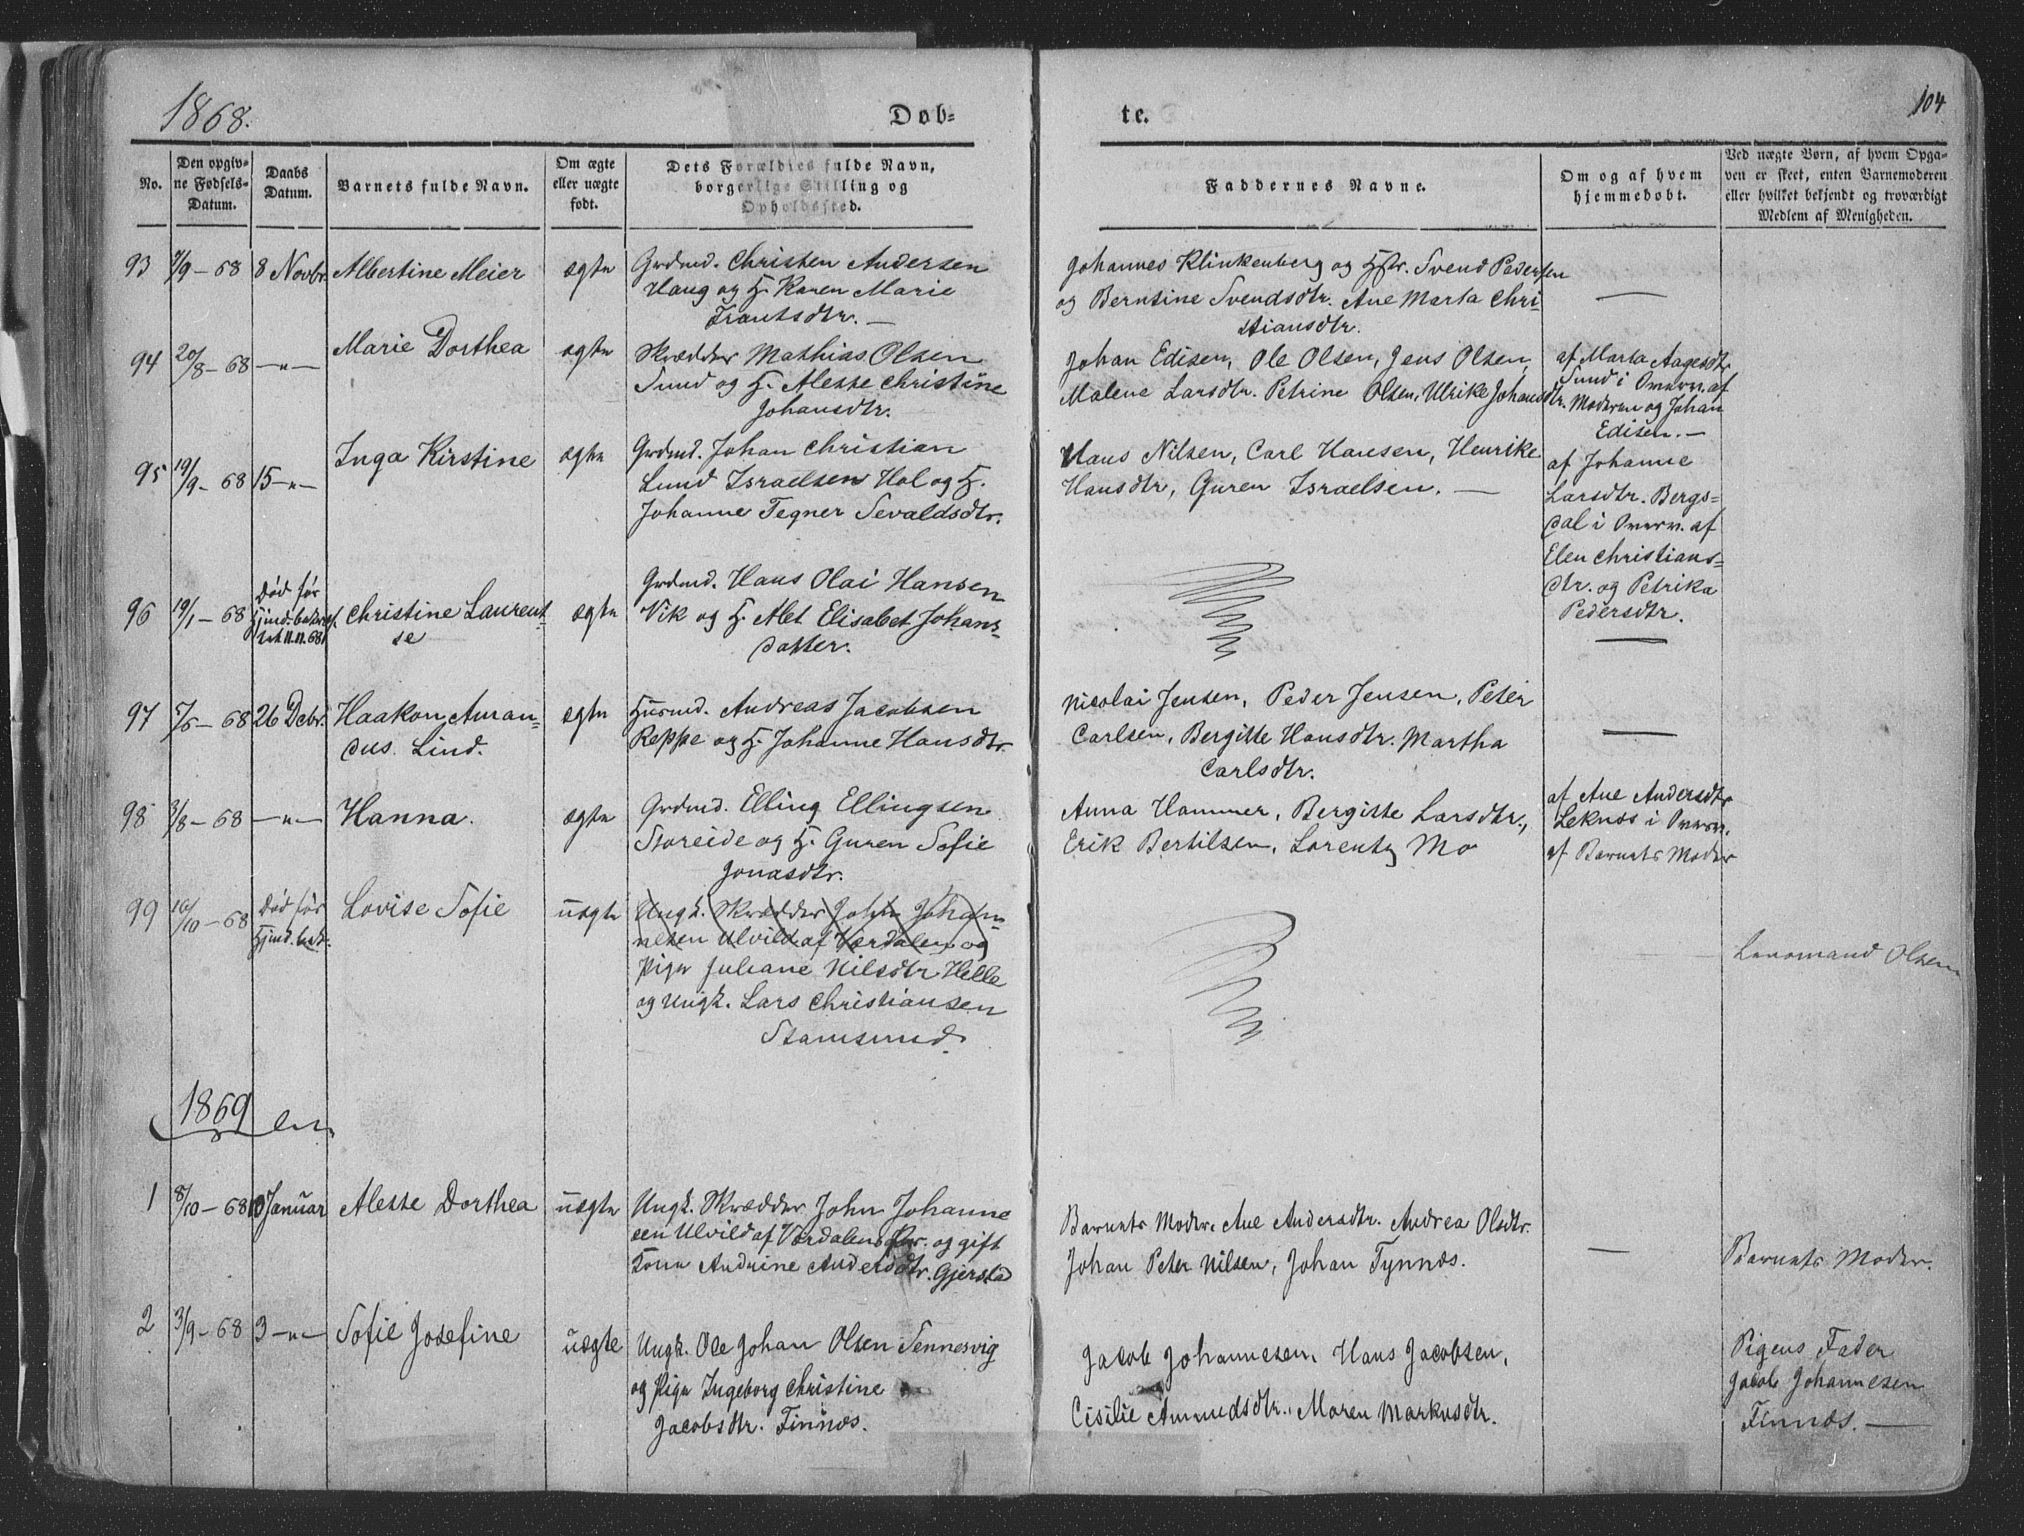 1868.
Døb-
te.
104
No.
Den opgiv-
ne Fødsels-
Datum.
Daabs
Datum.
Barnets fulde Navn.
Om ægte
eller uægte
født.
Dets Forældres fulde Navn,
borgerlige Stilling og
Opholdssted.
Faddernes Navne.
Om og af hvem
hjemmedøbt.
Ved uægte Børn, af hvem Opga-
ven er skeet, enten Barnemoderen
eller hvilket bekjendt og troværdigt
Medlem af Menigheden.
93 7/9-68 8 Novbr. Albertine Meier ægte
Grdmd. Christen Andersen
Haug og H. Karen Marie
Frantsdtr. —
Johannes Klinkenberg og Hstr. Svend Pedersen
og Berntine Svendsdtr. Ane Marta Chri-
stiansdtr.
—
94 20/8-68 —"— Marie Dorthea ægte
Skrædder Mathias Olsen
Sund og H. Alette Christine
Johansdtr.
Johan Edisen, Ole Olsen, Jens Olsen,
Malene Larsdtr. Petrine Olsen, Ulrike Johansdtr.
af Marta Aagesdtr
Sund i Overv. af
Moderen og Johan
Edisen. —
95 19/9-68 15 —"— Inga Kirstine ægte
Grdmd. Johan Christian
Lund Israelsen Hol og H.
Johanne Tegner Sevaldsdtr.
Hans Nilsen, Carl Hansen, Henrike
Hansdtr, Guren Israelsen. —
af Johanne
Larsdtr. Bergs-
dal i Overv. af
Elen Christians-
dtr. og Petrika
Pedersdtr.
96 19/1-68 Død før
Hjmd. bekræf-
tet 11.11.68. Christine Laurent-
se ægte
Grdmd. Hans Olai Hansen
Vik og H. Alet Elisabet Johans-
datter.
—
97 7/5-68 26 Debr. Haakon Aman-
dus. Lind. ægte
Husmd. Andreas Jacobsen
Reppe og H. Johanne Hansdtr
Nicolai Jensen, Peder Jensen, Peter
Carlsen, Bergitte Hansdtr. Martha
Carlsdtr.
—
98 3/8-68 —"— Hanna. ægte
Grdmd. Elling Ellingsen
Storeide og H. Guren Sofie
Jonasdtr.
Anna Hammer, Bergitte Larsdtr.,
Erik Bertilsen, Lorentz Mo
af Ane Andersdtr
Leknæs i Overv.
af Barnets Moder
99 16/10-68 Død før
Hjmd. bek. Lovise Sofie uægte
Ungk. Skrædder John Johan-
nesen Ulvild af Værdalen og
Pige Juliane Nilsdtr Helle
og Ungk. Lars Christiansen
Stamsund.
Lensmand Olsen
1869
1 8/10-68 10 Januar Alette Dorthea uægte
Ungk. Skrædder John Johanne
sen Ulvild af Værdalens Pr. og gift
Kone Andrine Andersdtr. Gjerstad
Barnets Moder. Ane Andersdtr. Andrea Olsdtr.
Johan Peter Nilsen, Johan Fynnæs.
—
Barnets Moder.
2 3/9-68 3 —"— Sofie Josefine uægte
Ungk. Ole Johan Olsen Tennesvig
og Pige Ingeborg Christine
Jacobsdtr. Finnæs.
Jacob Johannesen, Hans Jacobsen,
Cisilie Amundsdtr., Maren Markusdtr.
Pigens Fader
Jacob Johannesen
Finnæs. —